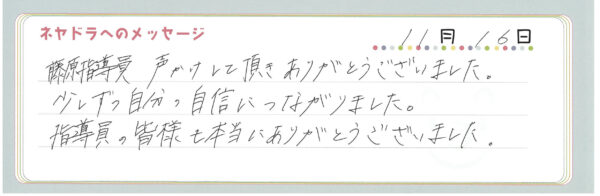 ネヤドラへのメッセージ 11月16日
藤原指導員 声かけして頂きありがとうございました。
少しずつ自分の自信につながりました。
指導員の皆様も本当にありがとうございました。